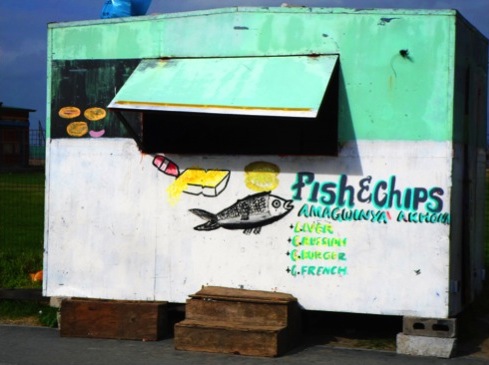 Fish & Chips
AMAGWINYA AKHONA
• LIVER
• G. RUSSIAN
• G. BURGER
• G. FRENCH